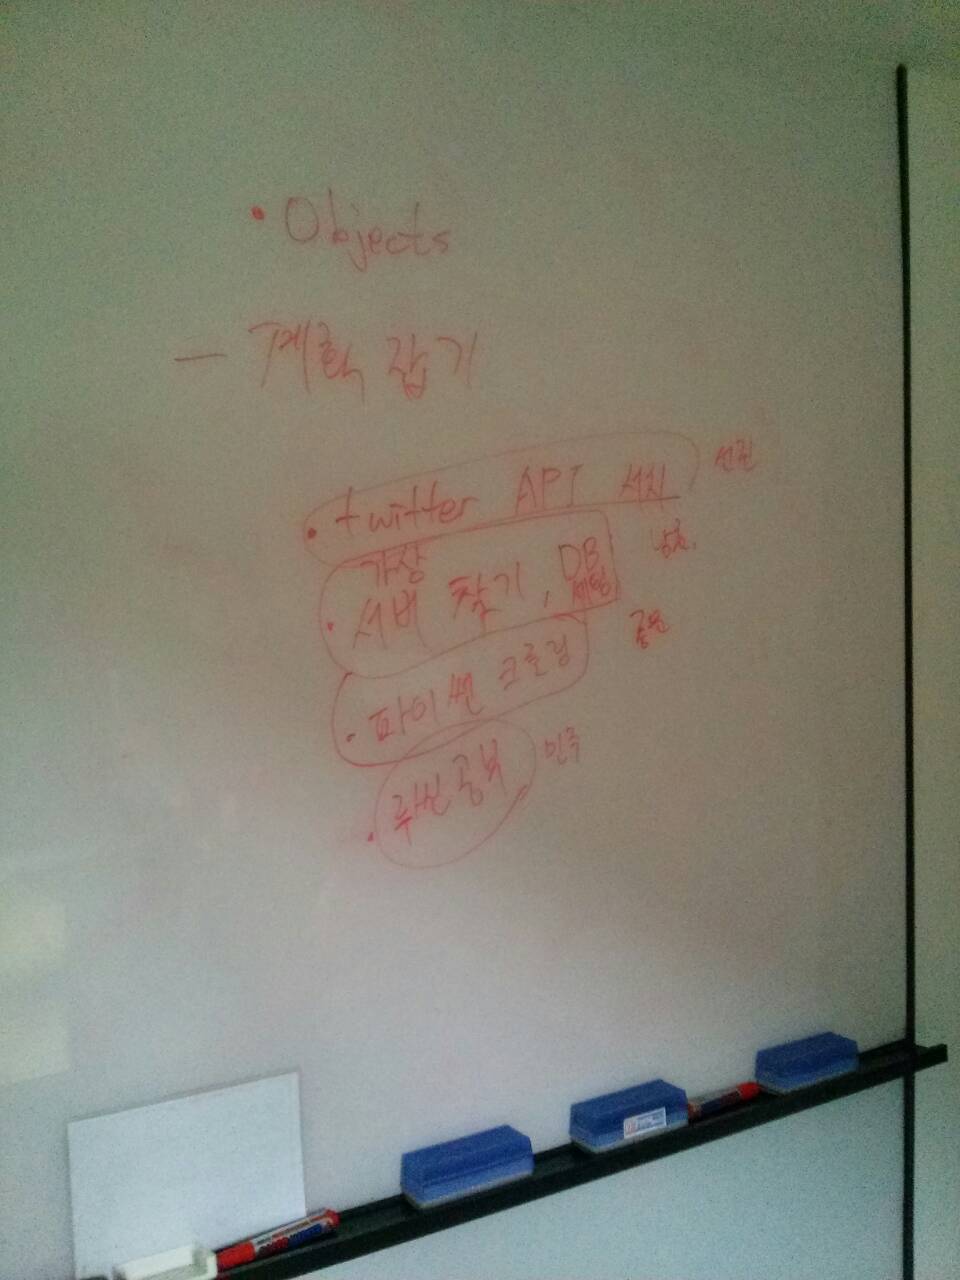 • Objects
— 계획 잡기
• twitter API 서치
가상
• 서버 찾기, DB 세팅
• 파이썬 크롤링
• 확신공부 민주